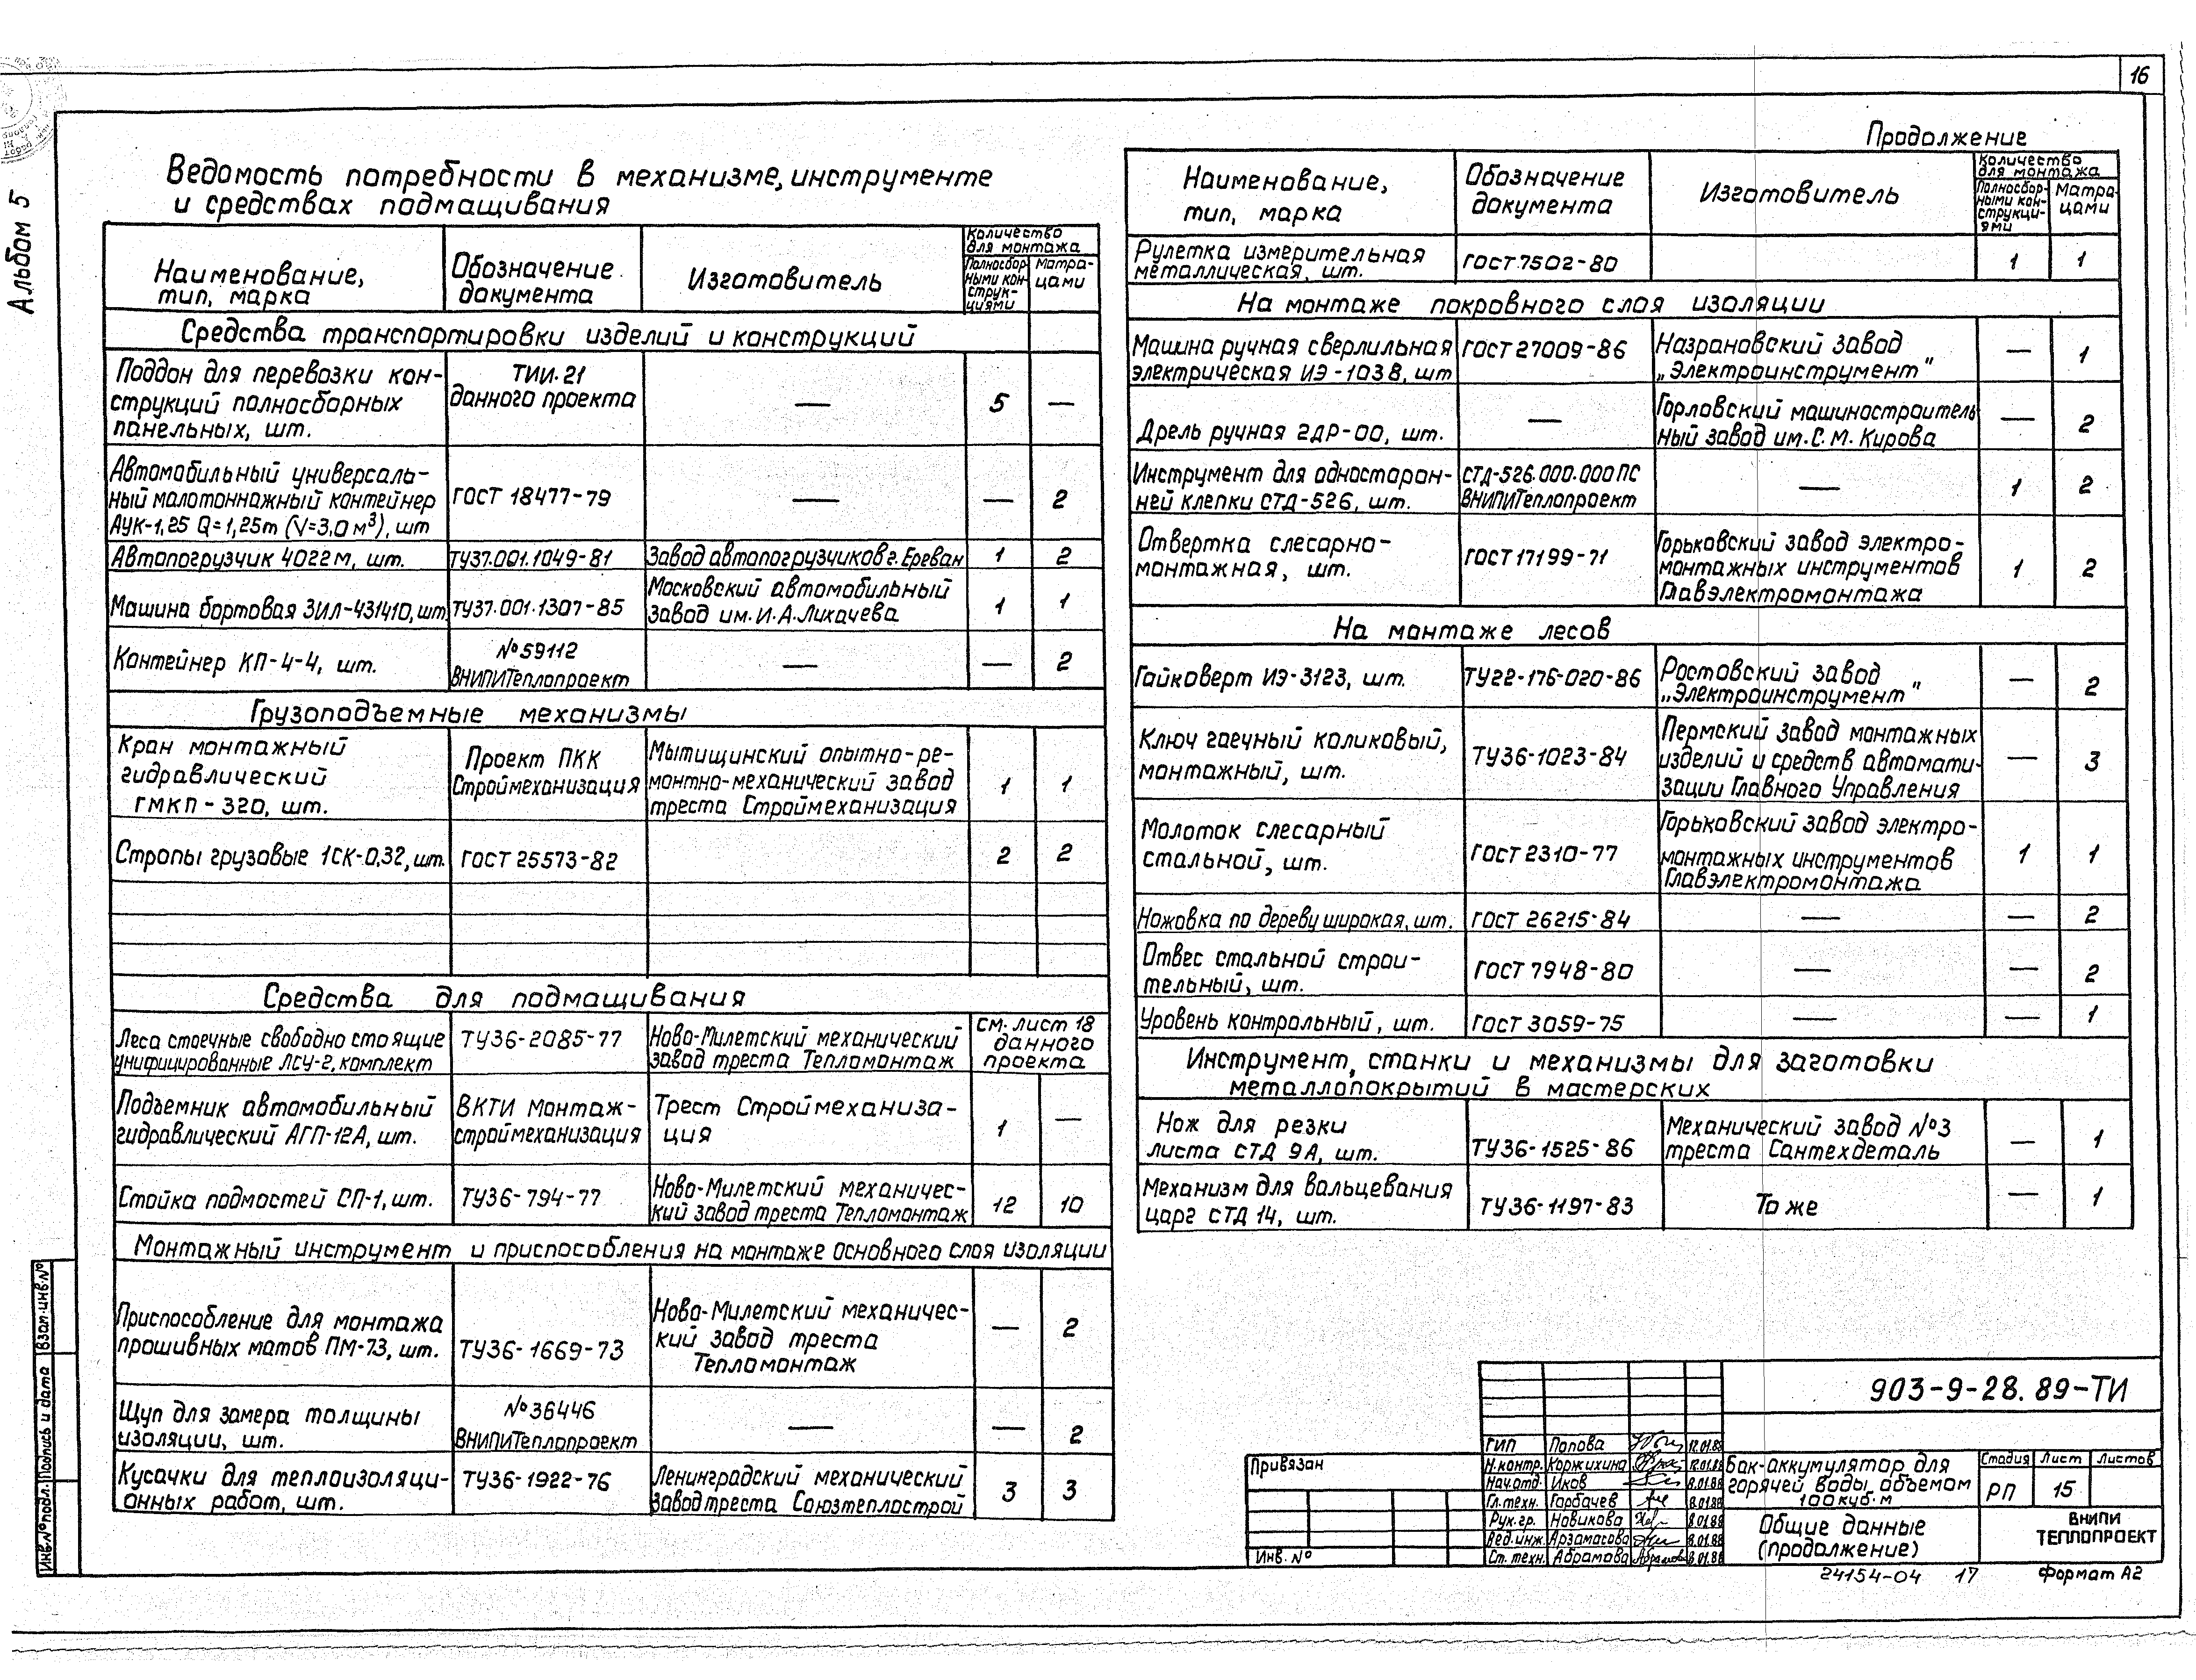 16
Альбом 5
Ведомость потребности в механизме, инструменте
и средствах подмащивания
Наименование,
тип, марка
Обозначение
документа
Изготовитель
Количество
для монтажа
Полносбор-
ными кон-
струк-
циями
Матра-
цами
Средства транспортировки изделий и конструкций
Поддон для перевозки кон-
струкций полносборных
панельных, шт.
ТИИ.21
данного проекта
—
5
—
Автомобильный универсаль-
ный малотоннажный контейнер
АУК-1,25 Q=1,25т (V=3,0 м³), шт
ГОСТ 18477-79
—
—
2
Автопогрузчик 4022м, шт.
ТУ37.001.1049-81
Завод автопогрузчиков г. Ереван
1
2
Машина бортовая ЗИЛ-431410, шт.
ТУ37.001.1307-85
Московский автомобильный
завод им. И.А. Лихачева
1
1
Контейнер КП-4-4, шт.
№59112
ВНИПИТеплопроект
—
—
2
Грузоподъемные механизмы
Кран монтажный
гидравлический
ГМКП-320, шт.
Проект ПКК
Строймеханизация
Мытищинский опытно-ре-
монтно-механический завод
треста Строймеханизация
1
1
Стропы грузовые 1СК-0,32, шт.
ГОСТ 25573-82
2
2
Средства для подмащивания
Леса стоечные свободно стоящие
унифицированные ЛСУ-2, комплект
ТУ36-2085-77
Ново-Милетский механический
завод треста Тепломонтаж
см. лист 18
данного
проекта
Подъемник автомобильный
гидравлический АГП-12А, шт.
ВКТИ Монтаж-
строймеханизация
Трест Строймеханиза-
ция
1
—
Стойка подмостей СП-1, шт.
ТУ36-794-77
Ново-Милетский механичес-
кий завод треста Тепломонтаж
12
10
Монтажный инструмент и приспособления на монтаже основного слоя изоляции
Приспособление для монтажа
прошивных матов ПМ-73, шт.
ТУ36-1669-73
Ново-Милетский механичес-
кий завод треста
Тепломонтаж
—
2
Щуп для замера толщины
изоляции, шт.
№36446
ВНИПИТеплопроект
—
—
2
Кусачки для теплоизоляци-
онных работ, шт.
ТУ36-1922-76
Ленинградский механический
завод треста Союзтеплострой
3
3
Продолжение
Наименование,
тип, марка
Обозначение
документа
Изготовитель
Количество
для монтажа
Полносбор-
ными кон-
струкци-
ями
Матра-
цами
Рулетка измерительная
металлическая, шт.
ГОСТ 7502-80
1
1
На монтаже покровного слоя изоляции
Машина ручная сверлильная
электрическая ИЭ-1038, шт
ГОСТ 27009-86
Назрановский завод
„Электроинструмент"
—
1
Дрель ручная 2ДР-00, шт.
—
Горловский машиностроитель-
ный завод им. С.М. Кирова
—
2
Инструмент для односторон-
ней клепки СТД-526, шт.
СТД-526.000.000ПС
ВНИПИТеплопроект
—
1
2
Отвертка слесарно-
монтажная, шт.
ГОСТ 17199-71
Горьковский завод электро-
монтажных инструментов
Главэлектромонтажа
1
2
На монтаже лесов
Гайковерт ИЭ-3123, шт.
ТУ22-176-020-86
Ростовский завод
„Электроинструмент"
—
2
Ключ гаечный коликовый,
монтажный, шт.
ТУ36-1023-84
Пермский завод монтажных
изделий и средств автомати-
зации Главного Управления
—
3
Молоток слесарный
стальной, шт.
ГОСТ 2310-77
Горьковский завод электро-
монтажных инструментов
Главэлектромонтажа
1
1
Ножовка по дереву широкая, шт.
ГОСТ 26215-84
—
—
2
Отвес стальной строи-
тельный, шт.
ГОСТ 7948-80
—
—
2
Уровень контрольный, шт.
ГОСТ 3059-75
—
—
1
Инструмент, станки и механизмы для заготовки
металлопокрытий в мастерских
Нож для резки
листа СТД 9А, шт.
ТУ36-1525-86
Механический завод №3
треста Сантехдеталь
—
1
Механизм для вальцевания
царг СТД 14, шт.
ТУ36-1197-83
То же
—
1
Взам.инв.№
Подпись и дата
Инв.№подл.
Привязан
Инв. №
ГИП Попова 12.01.88
Н.контр. Коржихина 12.01.88
Нач.отд. Иков 8.01.88
Гл.техн. Горбачев 8.01.88
Рук.гр. Новикова 8.01.88
Вед.инж. Арзамасова 8.01.88
Ст. техн. Абрамова 8.01.88
903-9-28.89-ТИ
Бак-аккумулятор для
горячей воды, объемом
100 куб.м
Стадия Лист Листов
РП 15
Общие данные
(продолжение)
ВНИПИ
ТЕПЛОПРОЕКТ
24154-04 17
Формат А2